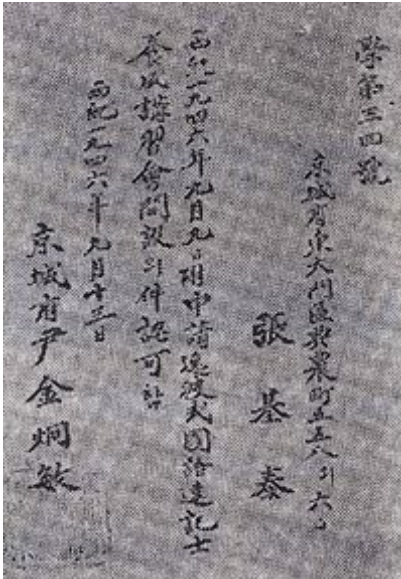 學第三四號
京城府東大門區典農町五五八의六
張基泰
西紀一九四六年九月九日附申請逸波式國語速記士
養成講習會開設의件認可함
西紀一九四六年九月十三日
京城府尹金炯敏